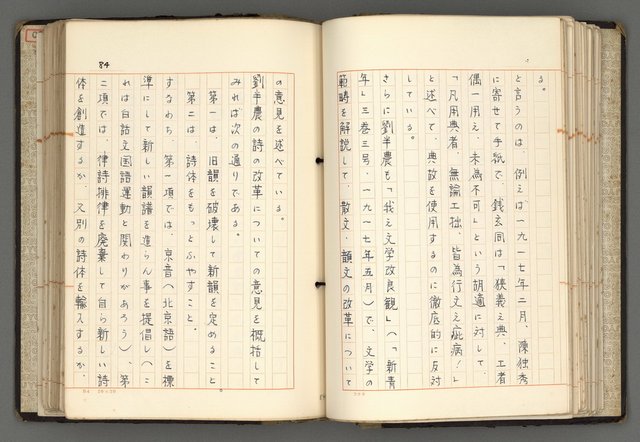 る。
と言うのは、例えば一九一七年二月、陳独秀
に寄せて手紙で、銭玄同は「狭義之典、工者
偶一用之、未為不可」という胡適に対して、
「凡用典者、無論工拙、皆為行文之疵病!」
と述べて、典故を使用するのに徹底的に反対
している。
さらに劉半農も「我之文学改良観」(「新青
年」三巻三号、一九一七年五月)で、文学の
範疇を解説して、散文・韻文の改革について
84
の意見を述べている。
劉半農の詩の改革についての意見を概括して
みれば次の通りである。
第一は、旧韻を破壊して新韻を定めること
第二は、詩体をもっとふやすこと。
すなわち、第一項では、京音(北京語)を標
準にして新しい韻譜を造らん事を提倡し(こ
れは白話文国語運動と関わりがあろう)、第
二項では、律詩排律を廃棄して自ら新しい詩
体を創造するか、又別の詩体を輸入するか、